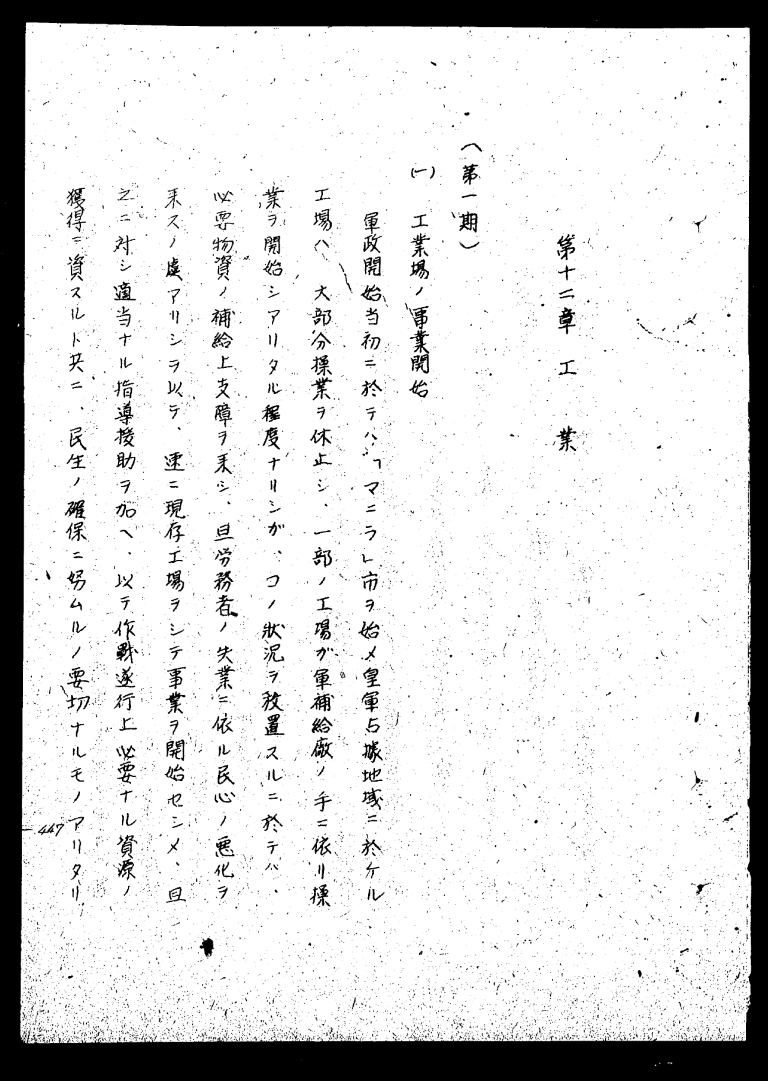 第十二章 工 業
(第一期)
(一) 工業場ノ事業開始
軍政開始当初ニ於テハ「マニラ」市ヲ始メ皇軍占據地域ニ於ケル
工場ハ 大部分操業ヲ休止シ、一部ノ工場ガ軍補給廠ノ手ニ依リ操
業ヲ開始シアリタル程度ナリシガ、コノ狀況ヲ放置スルニ於テハ、
必要物資ノ補給上支障ヲ来シ、且労務者ノ失業ニ依ル民心ノ悪化ヲ
来スノ虞アリシヲ以テ、速ニ現存工場ヲシテ事業ヲ開始セシメ、且
之ニ対シ適当ナル指導援助ヲ加ヘ、以テ作戰遂行上必要ナル資源ノ
獲得ニ資スルト共ニ、民生ノ確保ニ努ムルノ要切ナルモノアリタリ
447